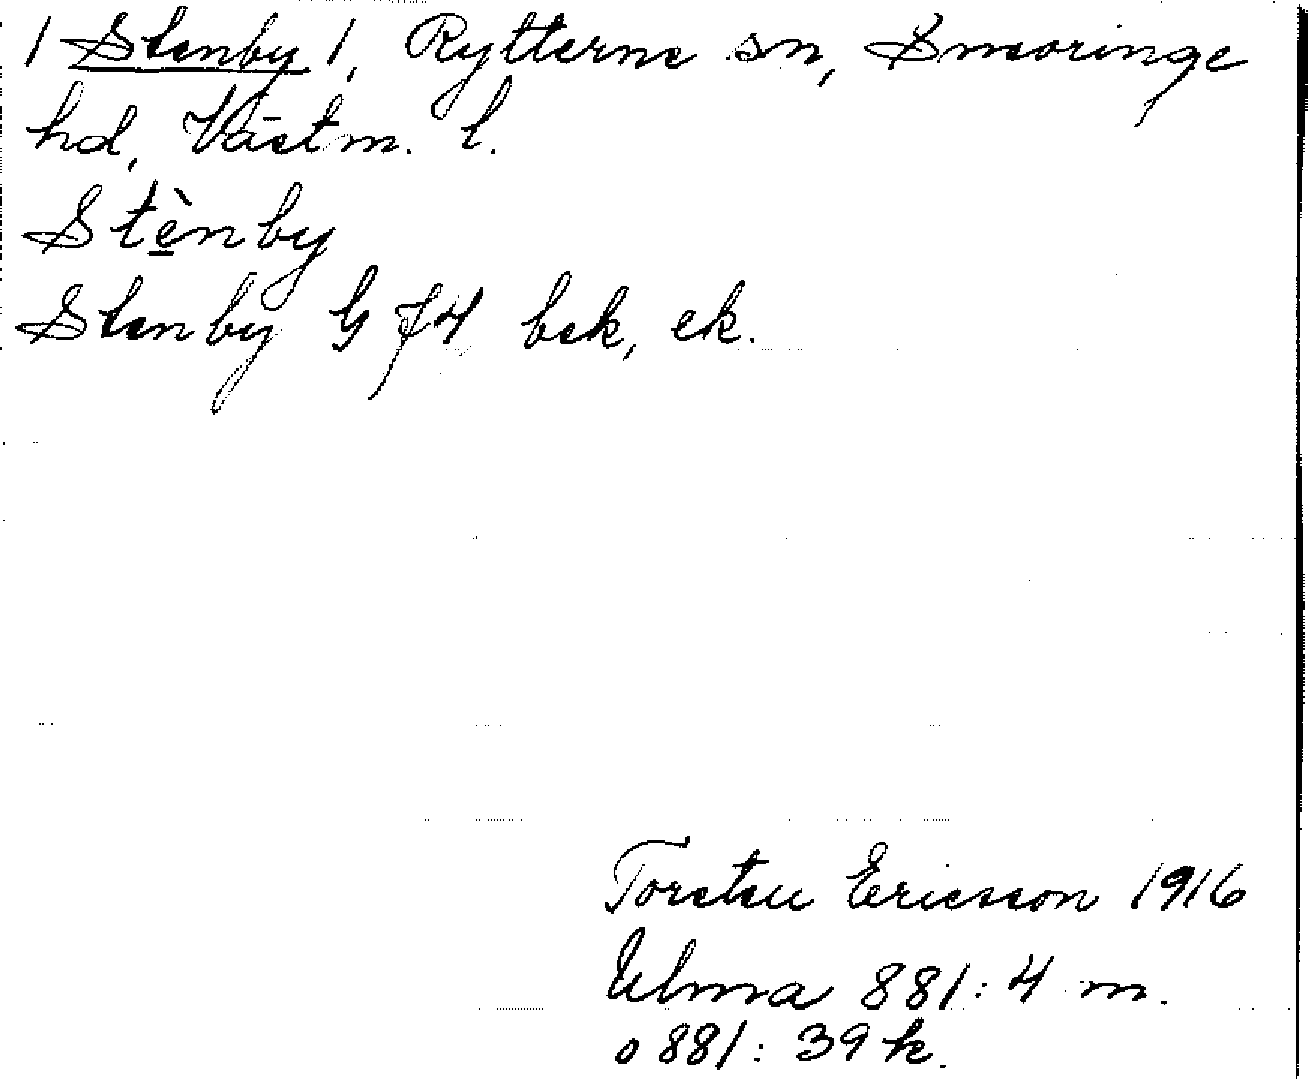 / Stenby /, Rytterne sn, Snevringe
hd, Västm. l.
Stènby
Stenby G J4 bek, ek.
Torsten Ericsson 1916
Ulma 881:4 m.
o 881: 39 k.